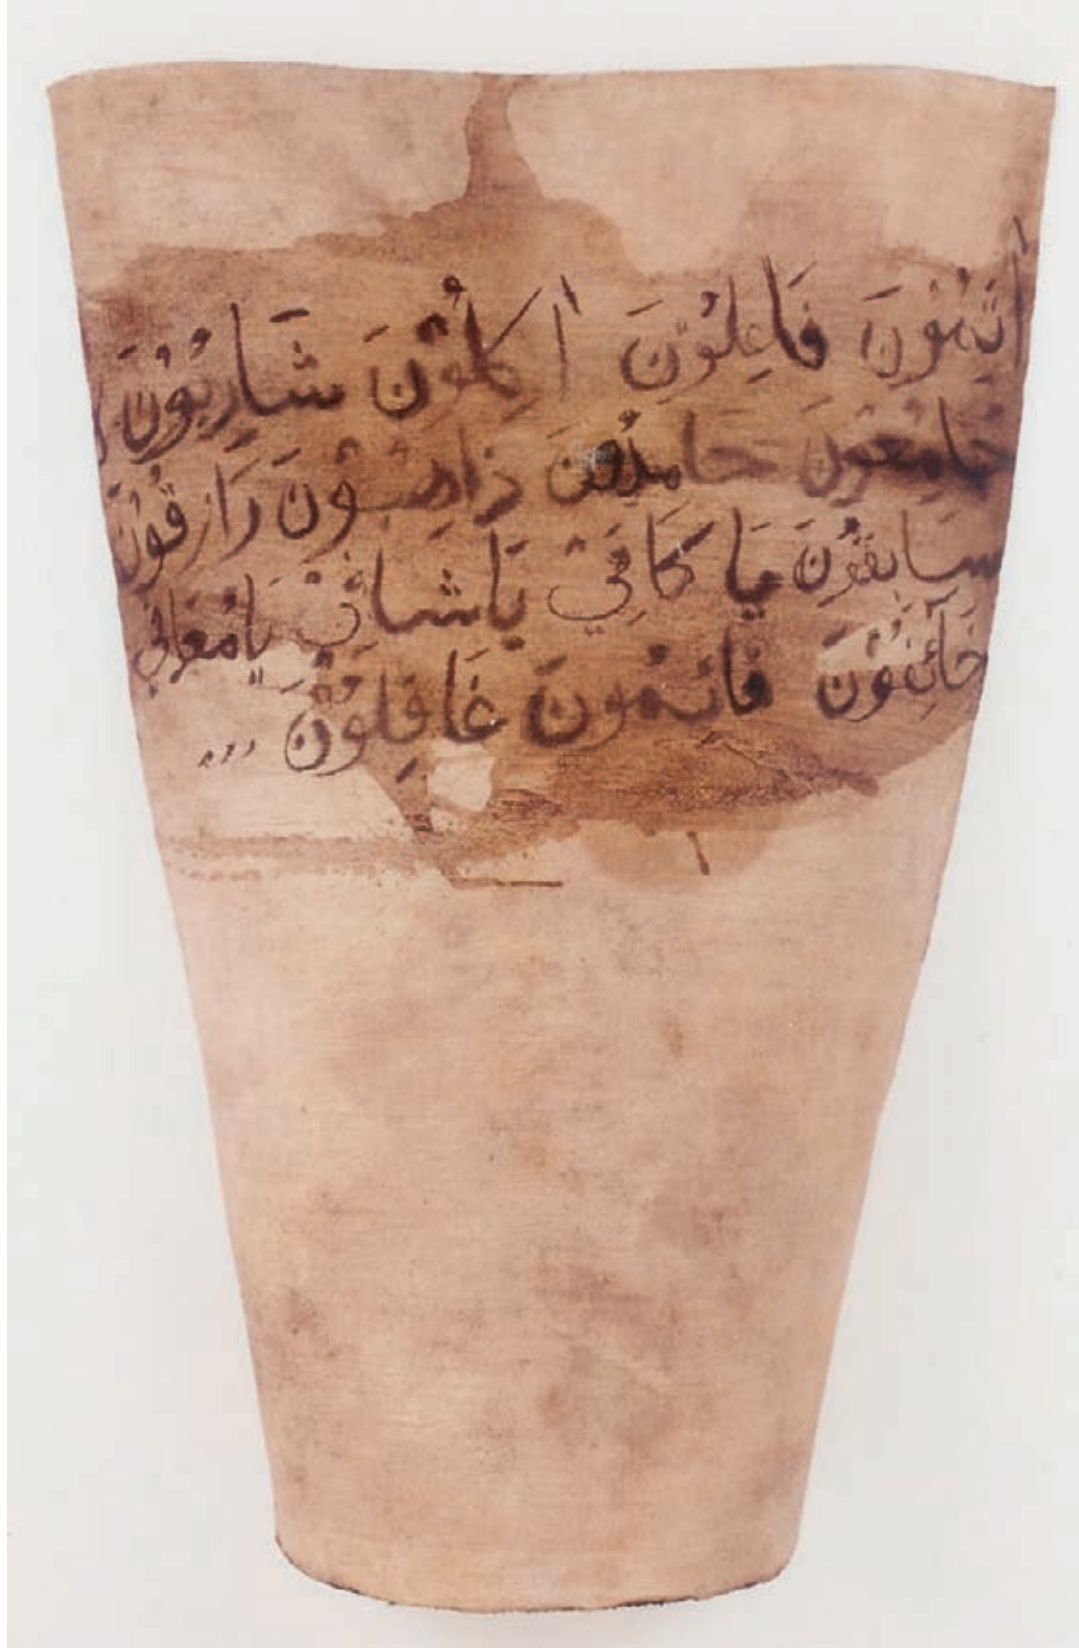 اٰثِمُوْنَ فَاعِلُوْنَ اٰكِلُوْنَ شَارِبُوْنَ
جَامِعُوْنَ حَامِدُوْنَ ذَاهِبُوْنَ رَازِقُوْنَ
سَابِقُوْنَ يَا كَافِيْ يَا شَافِيْ يَا مُعَافِيْ
خَائِفُوْنَ قَائِمُوْنَ غَافِلُوْنَ ...